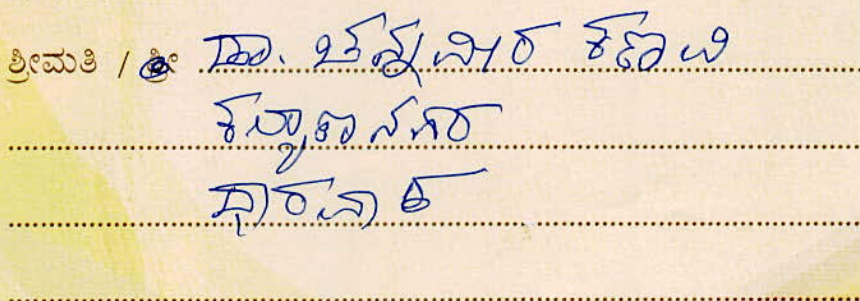 ಶ್ರೀಮತಿ / ಶ್ರೀ ಡಾ. ಚನ್ನವೀರ ಕಣವಿ
ಕಲ್ಯಾಣನಗರ
ಧಾರವಾಡ